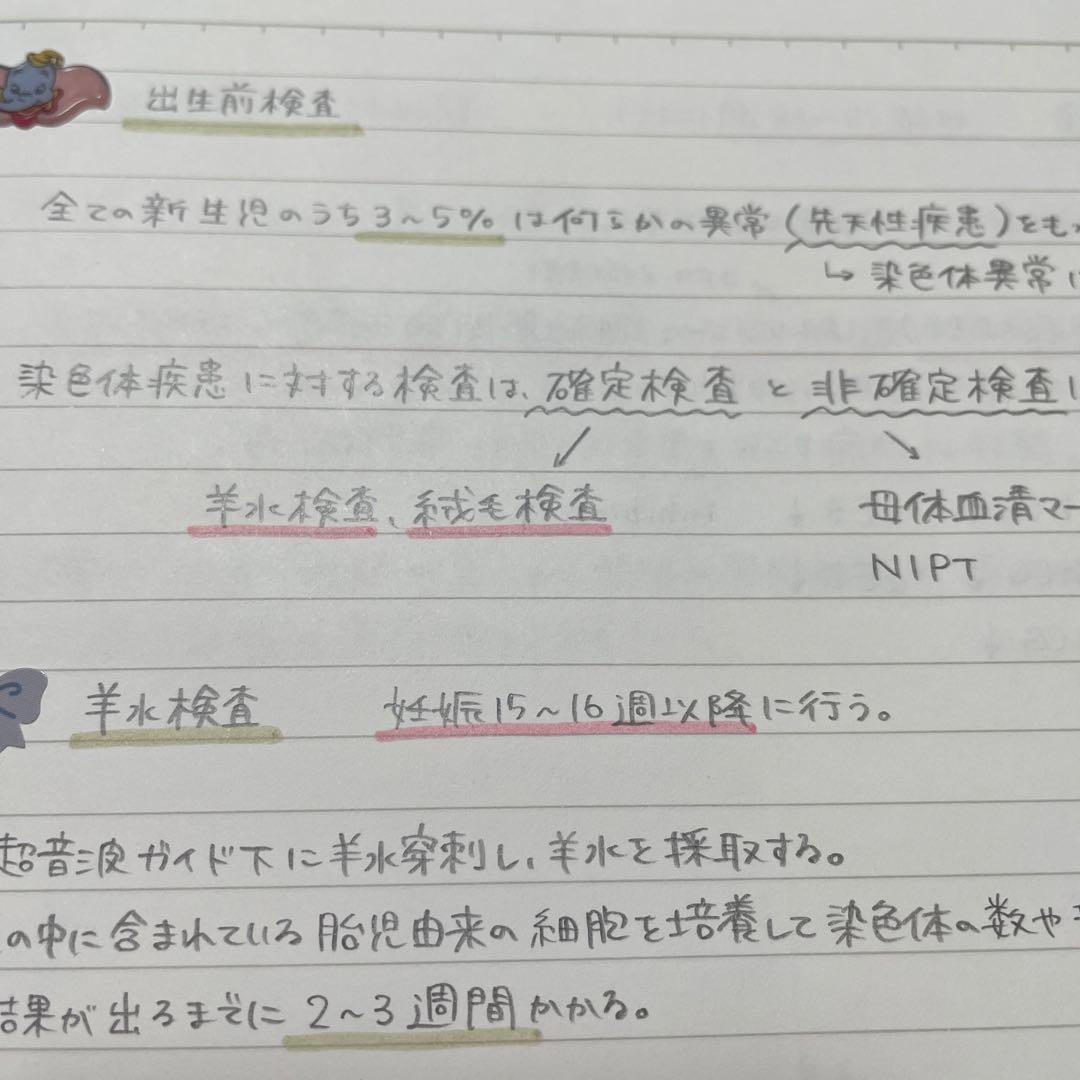 出生前検査
全ての新生児のうち3~5%は何らかの異常(先天性疾患)をも
↳ 染色体異常
染色体疾患に対する検査は、確定検査と非確定検査
↙ ↘
羊水検査、絨毛検査 母体血清マー
NIPT
羊水検査 妊娠15~16週以降に行う。
超音波ガイド下に羊水穿刺し、羊水を採取する。
の中に含まれている胎児由来の細胞を培養して染色体の数や
結果が出るまでに2~3週間かかる。